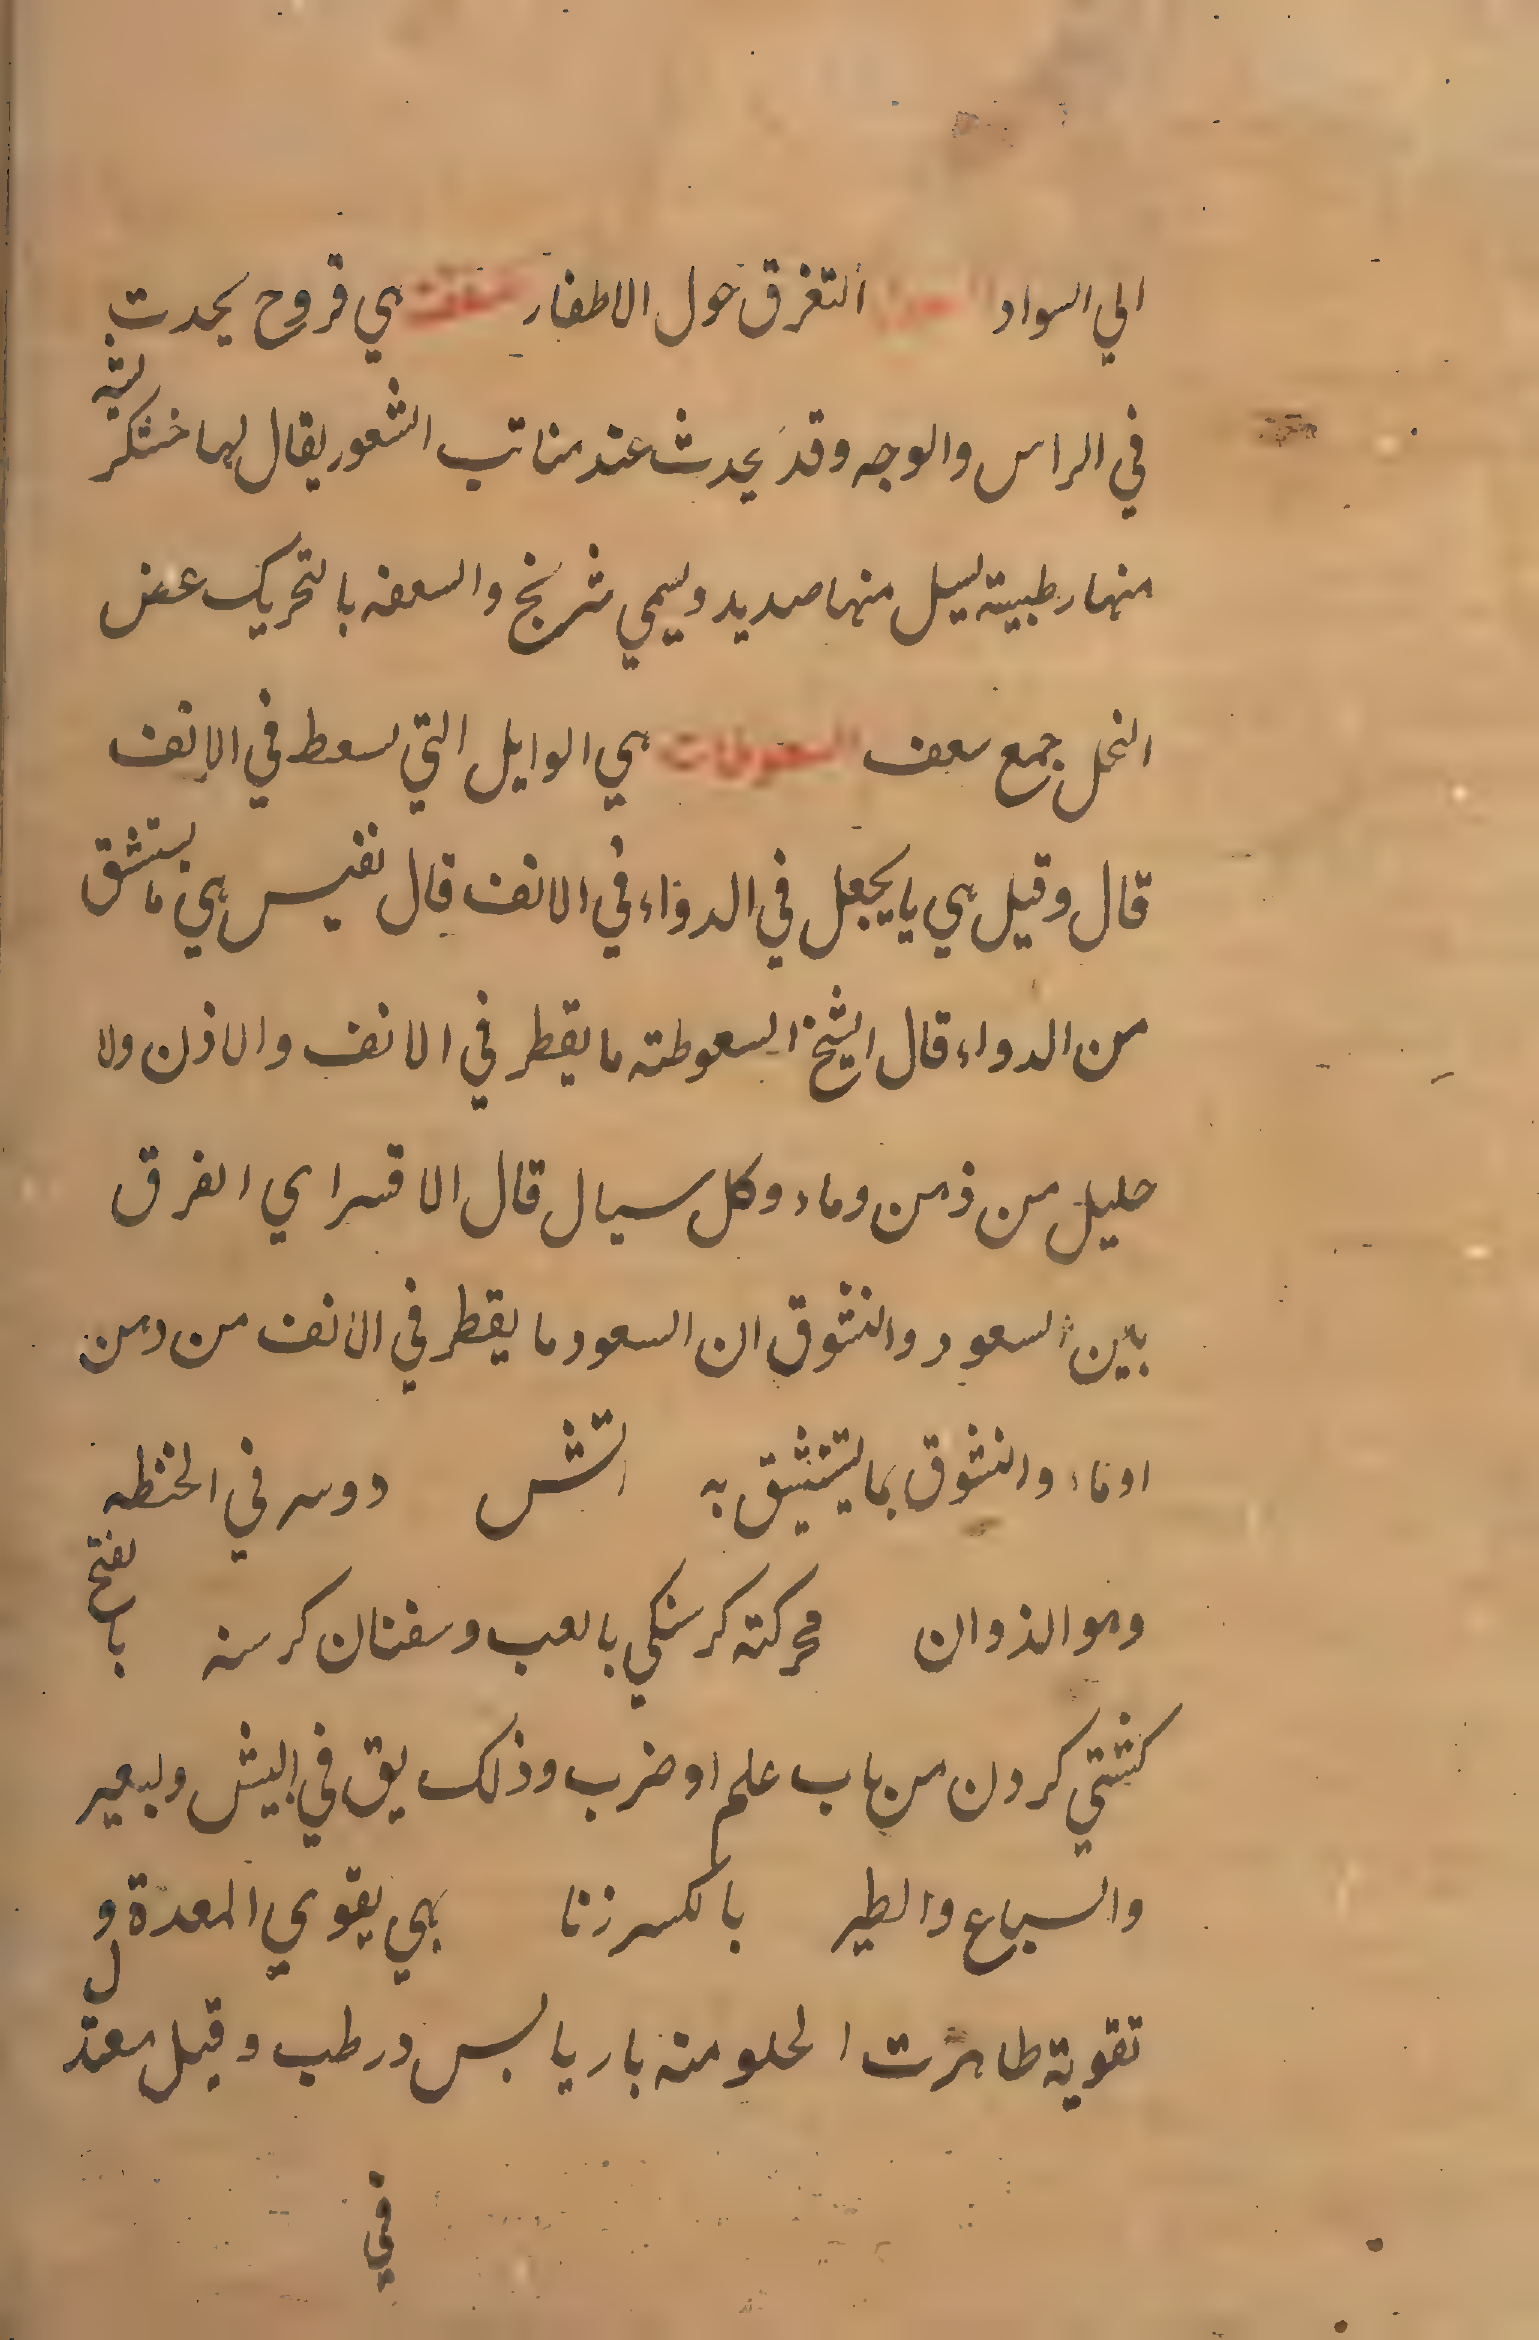 الي السواد التغرق حول الاظفار هي قروح يحدث
في الراس والوجه وقد يحدث عند منابت الشعور يقال لها خشكريشه
منها رطبيته يسيل منها صديد ويسمي شرنج والسعفه بالتحريك عض
النخل جمع سعف السعوطات هي الوايل التي سعط في الانف
قال وقيل هي يا يجعل في الدواء في الانف قال نفيس هي ما يستنشق
من الدواء قال الشيخ السعوطته ما يقطر في الانف والاذن ولا
حليل من ذهن وماء وكل سيال قال الاقسراي الفرق
بين السعود والنشوق ان السعود ما يقطر في الانف من دهن
اوماء والنشوق بما يستنشق به دوسر في الحنظه
وهو الذوان محركته كرسنكي بالعب وسفنان كرسنه بالفتح
كشتي كردن من باب علم او ضرب وذلك يق في البيش ولبعير
والسباع والطير بالكسر زنا بهي يقوي المعدة و
تقوية طاهرت الحلو منه بار يابس ورطب وقيل معتدل
في